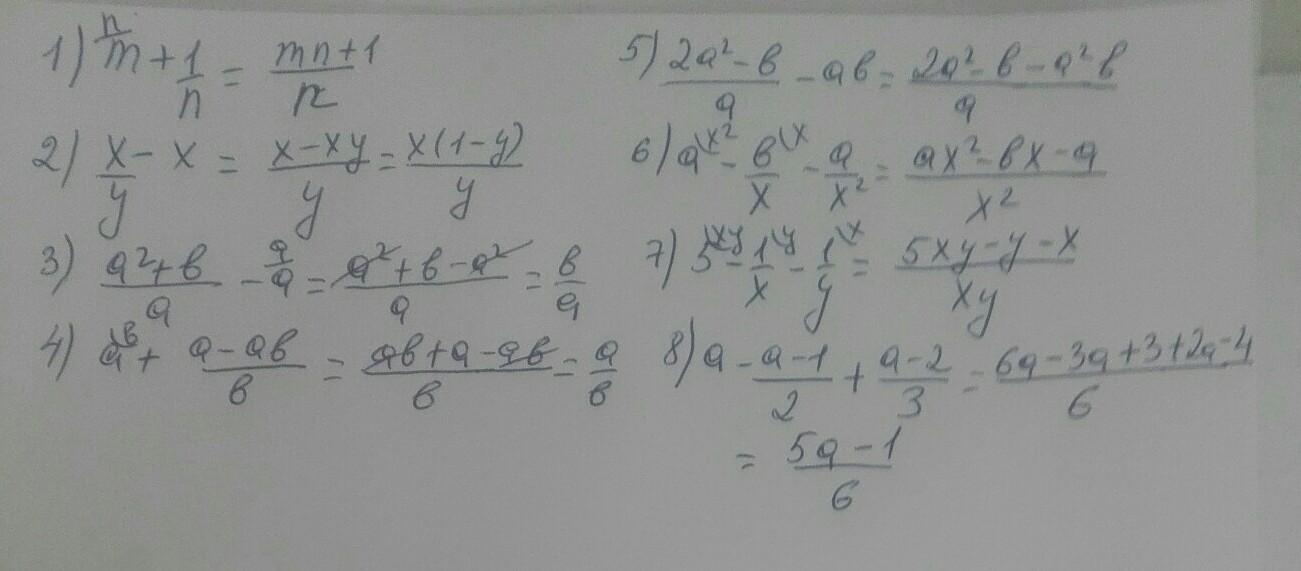 1) m^{\n} + 1/n = (mn+1)/n
2) x/y - x = (x-xy)/y = x(1-y)/y
3) (a²+b)/a - a^{\a} = (a²+b-a²)/a = b/a
4) a^{\b} + (a-ab)/b = (ab+a-ab)/b = a/b
5) (2a²-b)/a - ab = (2a²-b-a²b)/a
6) a^{\x²} - b/x^{\x} - a/x² = (ax²-bx-a)/x²
7) 5^{\xy} - 1/x^{\y} - 1/y^{\x} = (5xy-y-x)/xy
8) a - (a-1)/2 + (a-2)/3 = (6a-3a+3+2a-4)/6
= (5a-1)/6